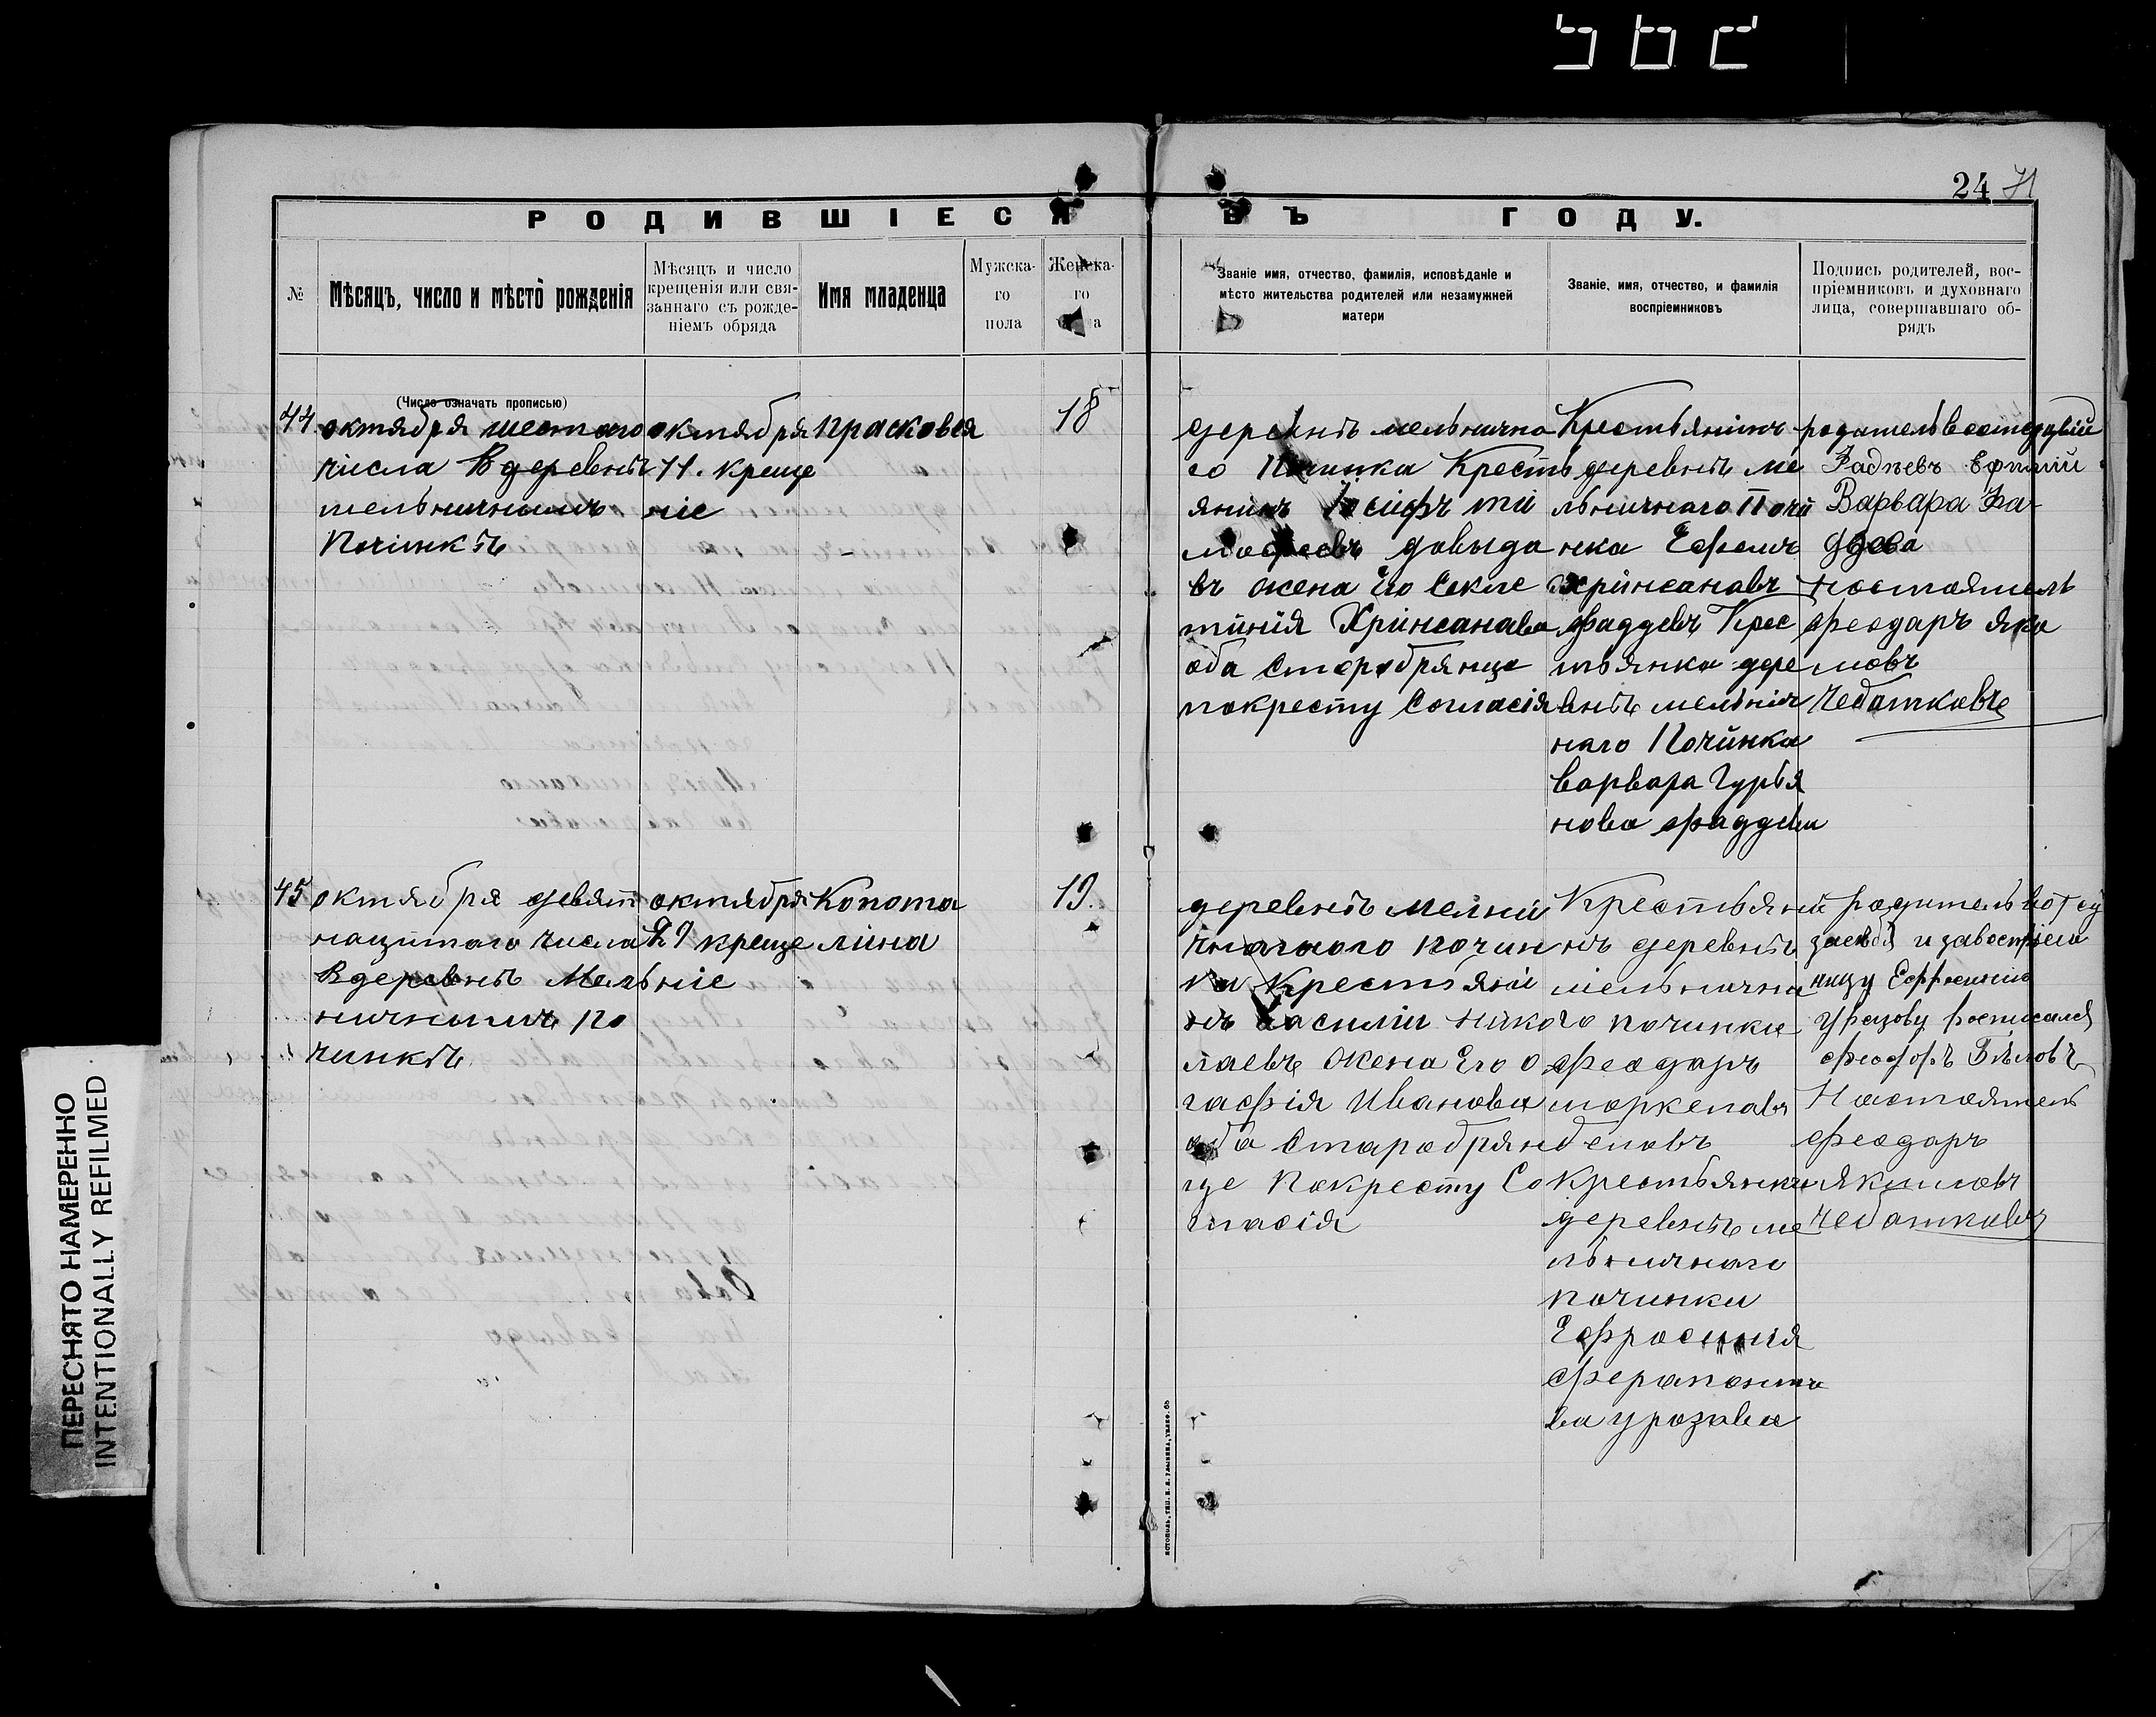 24 71
РОДИВШІЕСЯ ВЪ ГОДУ.
№
Мѣсяцъ, число и мѣсто рожденія
Мѣсяцъ и число
крещенія или свя-
заннаго съ рожде-
ніемъ обряда
Имя младенца
Мужска-
го
пола
Женска-
го
Званіе имя, отчество, фамилія, исповѣданіе и
мѣсто жительства родителей или незамужней
матери
Званіе, имя, отчество, и фамилія
воспріемниковъ
Подпись родителей, вос-
пріемниковъ и духовнаго
лица, совершавшаго об-
рядъ
(Число означать прописью)
44.
октября шестаго
числа В деревнѣ
мельничнымъ
Починкѣ
октября
11. креще
ніе
Прасковея
18
деревнѣ мельнична
го Починка Кресть
янинъ Іосифъ ти
мофеевъ довыдо
въ жена Его Секле
тинія Хрінсанова
оба Старобрянце
покресту Согласія
Крестьянинъ
деревнѣ ме
льничнаго Почи
нка Ефемъ
хрінсановъ
фаддевъ Крес
тьянка дере
внѣ мельнич
наго Починка
варвара Гурья
нова фаддева
родитель
Фадѣевъ
Варвара Фа-
дѣева
Настоятель
феодаръ яки
мовъ
Чебатковъ
45
октября девят
нацитаго числа
В деревнѣ Мель
ничнымъ по
чинкѣ
октября
21 креще
ніе
Капота
лина
19.
деревнѣ мелни
чнаго почин
ка Крестьяни
нъ Василій Нико
лаевъ жена Его о
гафія Иванова
оба Старобрян
це Покресту Со
гласія
Крестьяни
нъ деревнѣ
мельнична
го починка
феодаръ
моркеловъ
беловъ
Крестьянка
деревнѣ ме
льничнаго
починка
Ефросинія
ферапонто
ва урозава
родитель
за себя и за воспріем
ницу
Уразову росписался
феодоръ Бѣловъ
Настоятель
феодаръ
якимовъ
Чебатковъ
ПЕРЕСНЯТО НАМЕРЕННО
INTENTIONALLY REFILMED